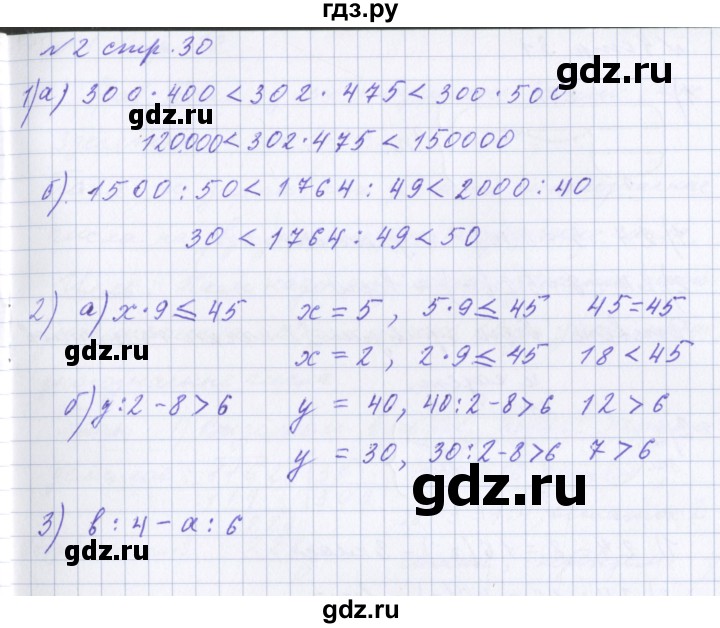 гдз.ру
№2 стр. 30
1) а) 300 · 400 < 302 · 475 < 300 · 500
gdz.ru
120000 < 302 · 475 < 150000
б). 1500 : 50 < 1764 : 49 < 2000 : 40
30 < 1764 : 49 < 50
2) а) x · 9 ≤ 45 x = 5, 5 · 9 ≤ 45 45 = 45
gdz.ru
x = 2, 2 · 9 ≤ 45 18 < 45
б) y : 2 - 8 > 6 y = 40, 40 : 2 - 8 > 6 12 > 6
y = 30, 30 : 2 - 8 > 6 7 > 6
gdz.ru
3) в : 4 - а : 6
gdz.ru
gdz.ru